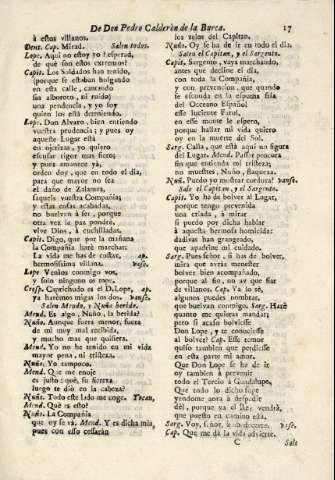 De Don Pedro Calderòn de la Barca.
17
à estos villanos.
Dent. Cap. Mirad. Salen todos.
Lope. Aqui no estoy yo? esperad,
de què son estos extremos?
Capit. Los Soldados han tenido,
porque se estaban holgando
en esta calle, cantando
sin alboroto, ni ruido;
una pendencia, y yo soy
quien los està deteniendo.
Lope. Don Alvaro, bien entiendo
vuestra prudencia; y pues oy
aqueste Lugar està
en ojeriza, yo quiero
escusar rigor mas fiero;
y pues amanece ya,
orden doy, que en todo el dia,
para que mayor no sea
el daño de Zalamea,
saqueis vuestra Compañia;
y estas cosas acabadas,
no buelvan à ser, porque
otra vez la paz pondrè,
vive Dios, à cuchilladas.
Capit. Digo, que por la mañana
la Compañia harè marchar:
La vida me has de costar, ap.
hermosissima villana. vase.
Lope Venios conmigo vos,
y solo ninguno os tope.
Cresp. Caprichudo es el D. Lope, ap.
ya harèmos migas los dos. vanse.
Salen Mendo, y Nuño herido.
Mend. Es algo, Nuño, la herida?
Nuño. Aunque fuera menos, fuera
de mi muy mal recibida,
y mucho mas que quisiera.
Mend. Yo no he tenido en mi vida
mayor pena, ni tristeza.
Nuño. Yo tampoco.
Mend. Que me enoje
es justo: què, su fiereza
luego te diò en la cabeza?
Nuño. Todo este lado me coge. Tocan,
Mend. Què es esto?
Nuño. La Compañia
que oy se và. Mend. Y es dicha mia,
pues con esso cessaràn
los zelos del Capitan.
Nuño. Oy se ha de ir en todo el dia.
Salen el Capitan, y el Sargento.
Capit. Sargento, vaya marchando,
antes que decline el dia,
con toda la Compañia,
y con prevencion, que quando
se esconda en la espuma fria
del Occeano Español
esse luciente Farol,
en esse monte le espero,
porque hallar mi vida quiero
oy en la muerte del Sol.
Sarg. Calla, que està aqui un figura
del Lugar. Mend. Passar procura
sin que entienda mi tristeza,
no muestres, Nuño, flaqueza.
Nuñ. Puedo yo mostrar cordura? vanse.
Sale el Capitan, y el Sargento.
Capit. Yo he de bolver al Lugar,
porque tengo prevenida
una criada, à mirar
si puedo por dicha hablar
à aquesta hermosa homicida:
dadivas han grangeado,
que apadrine mi cuidado.
Sarg. Pues señor, si has de bolver,
mira que avràs menester
bolver bien acompañado,
porque al fin, no ay que fiar
de villanos. Cap. Ya lo sè,
algunos puedes nombrar,
que buelvan conmigo. Sarg. Harè
quanto me quieras mandar;
pero si acaso bolviesse
Don Lope, y te conociesse
al bolver? Cap. Esse temor
quiso tambien que perdiesse
en esta parte mi amor.
Que Don Lope se ha de ir
oy tambien à prevenir
todo el Tercio à Guadalupe,
Que todo lo dicho supe
yendome aora à despedir
dèl, porque ya el Rey vendrà,
que puesto en camino està.
Sarg. Voy, señor, à obedecerte. vase.
Cap. Que me dà la vida advierte.
C
Sale